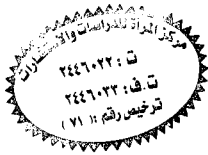 مركز المرأة للدراسات والاستشارات
ت : ٢٤٤٦٠٢٢
ت.ف: ٢٤٤٦٠٢٣
ترخيص رقم :( ٧١ )